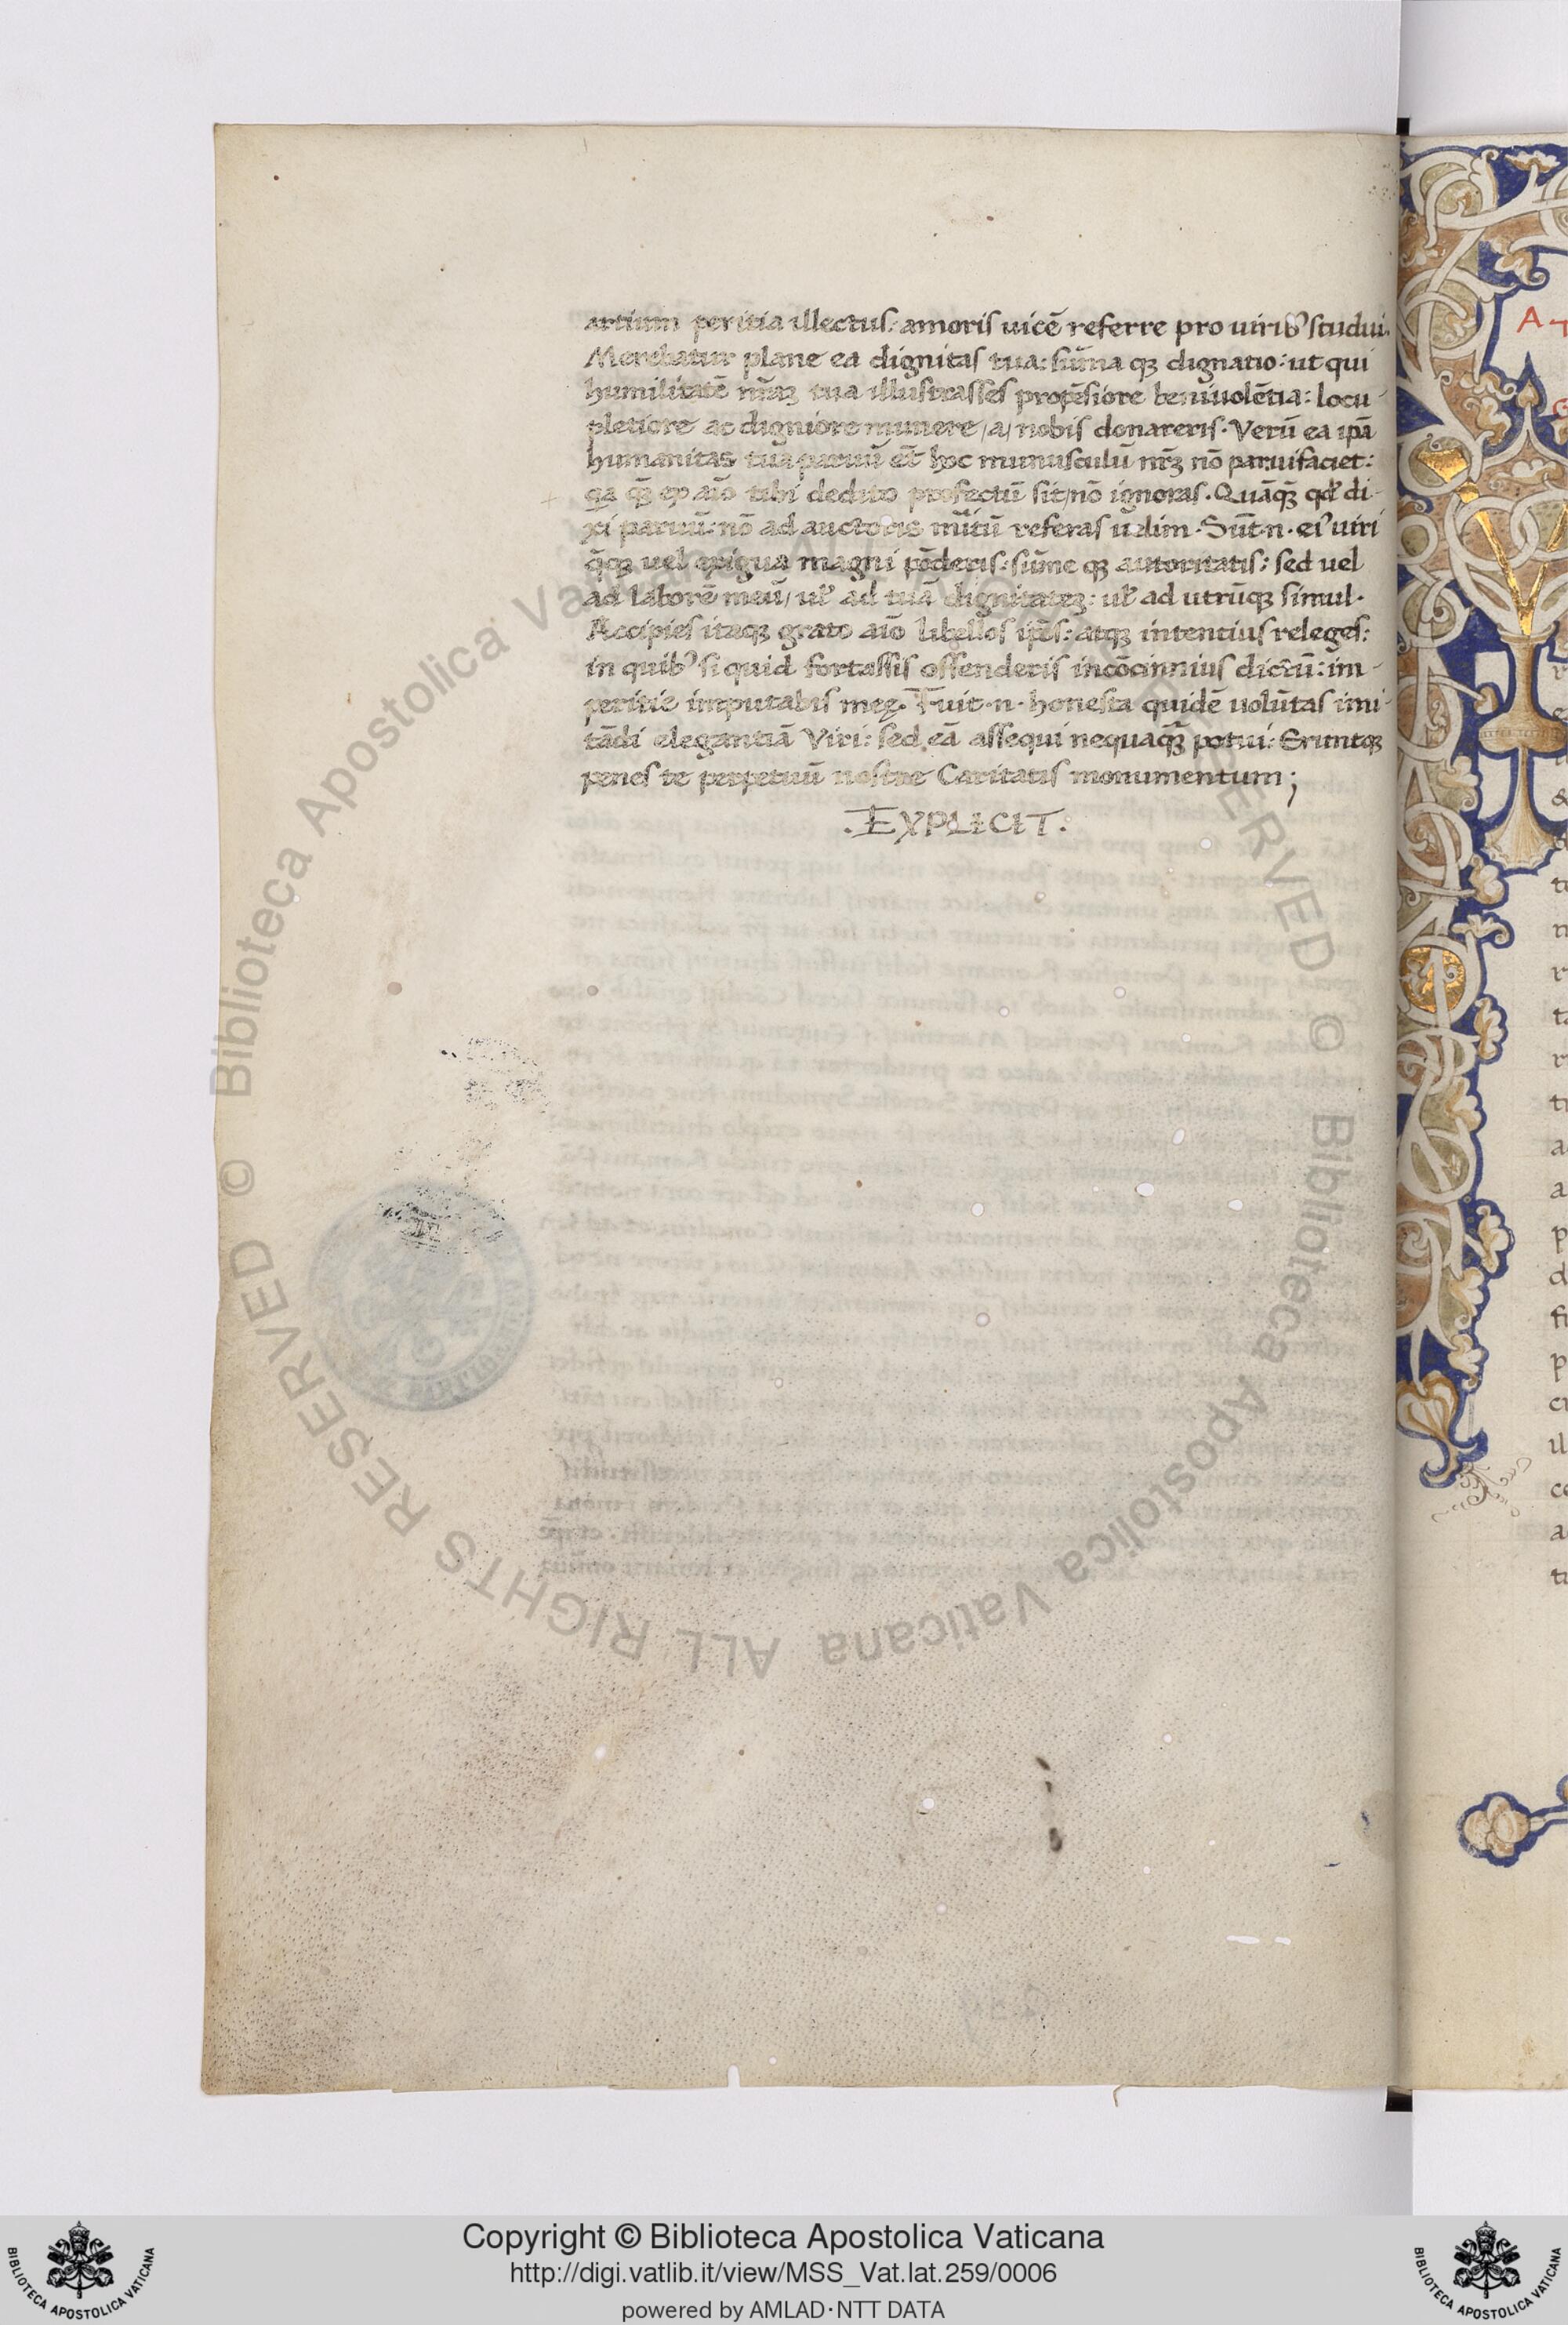 artium peritia illectus: amoris uicē referre pro uirib᾽ studui.
Merebatur plane ea dignitas tua: sūma qꝫ dignatio: ut qui
humilitatē nr̄aꝫ tua illustrasses propēsiore beniuolētia: locu-
pletiore ac digniore munere/a/nobis donareris. Verū ea ipā
humanitas tua paruū et̄ hoc munusculū nr̄ꝫ nō paruifaciet:
qꝫ ex aīo tibi dedito profectū sit/nō ignoras. Quāqꝫ̄ qd̓ di-
xi paruū: nō ad auctoris referas uelim. Sūt.n. ei᾽ uiri
uel exigua magni pōderis: sūme qꝫ autoritatis: sed uel
ad laborē meū/ ul̓ ad tuā dignitateꝫ: ul̓ ad utrūqꝫ simul.
Accipies itaqꝫ grato aīo libellos ip̄os: atqꝫ intentius releges:
in quib᾽ si quid fortassis offenderis incōcinnius dictū: im-
peritie imputabis meę. Fuit.n. honesta quidē uolūtas imi-
tādi elegantiā Viri: sed eā assequi nequaqꝫ̄ potui: Eruntqꝫ
penes te perpetuū nostre Caritatis monumentum;
.EXPLICIT.
© Biblioteca Apostolica Vaticana ALL RIGHTS RESERVED © Biblioteca Apostolica Vaticana ALL RIGHTS RESERVED
Copyright © Biblioteca Apostolica Vaticana
http://digi.vatlib.it/view/MSS_Vat.lat.259/0006
powered by AMLAD·NTT DATA
BIBLIOTECA APOSTOLICA VATICANA
BIBLIOTECA APOSTOLICA VATICANA